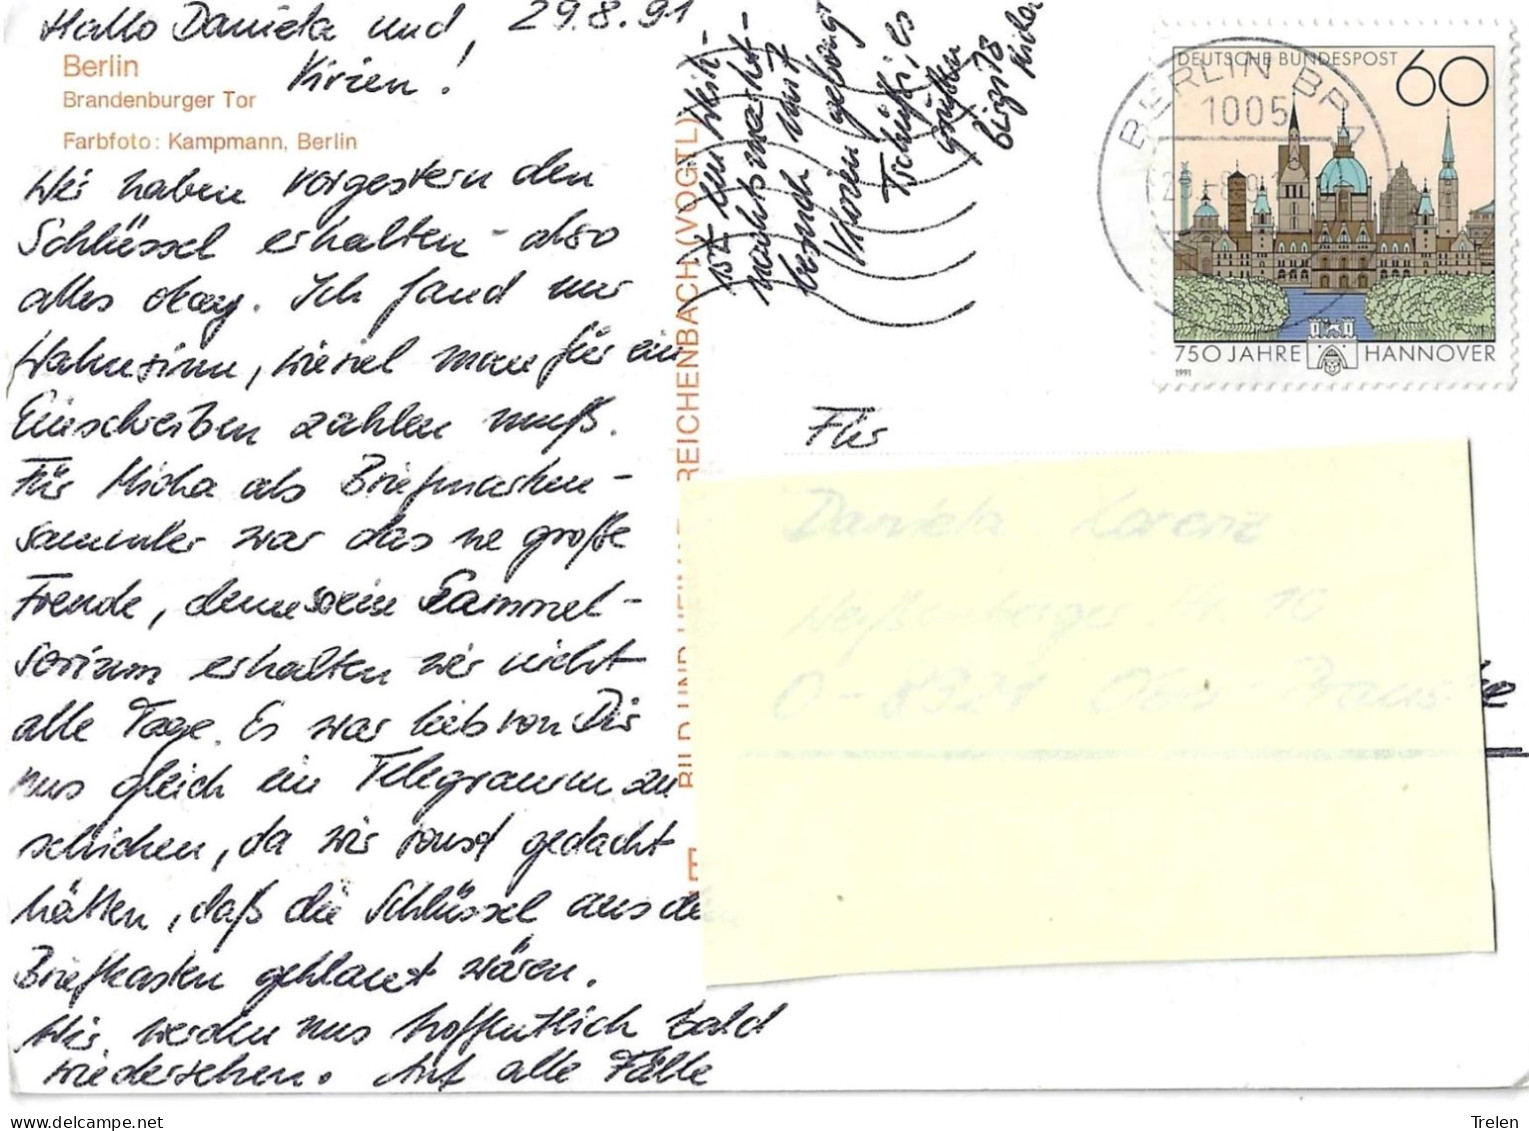 Hallo Daniela und, 29.8.91
Kirien!
Berlin
Brandenburger Tor
Farbfoto: Kampmann, Berlin
Wir haben vorgestern den
Schlüssel erhalten - also
alles okay. Ich fand nur
Wahnsinn, wieviel man für ein
Einschreiben zahlen muß.
Für Micha als Briefmarken-
sammler war das ne große
Freude, denn so eine Sammel-
erhalten wir nicht
alle Tage. Es war lieb von Dir
uns gleich ein Telegramm zu
schicken, da wir sonst gedacht
hätten, daß die Schlüssel aus dem
Briefkasten geklaut wären.
Wir werden uns hoffentlich bald
wiedersehen. Auf alle Fälle
ist ein Weih-
nachtsmarkt-
besuch mit
Tschüß, es
grüßen
BILD UND HEIMAT REICHENBACH (VOGTL)
DEUTSCHE BUNDESPOST 60
750 JAHRE HANNOVER
1991
BERLIN
1005
Für
Daniela Lorenz
10
Trelen